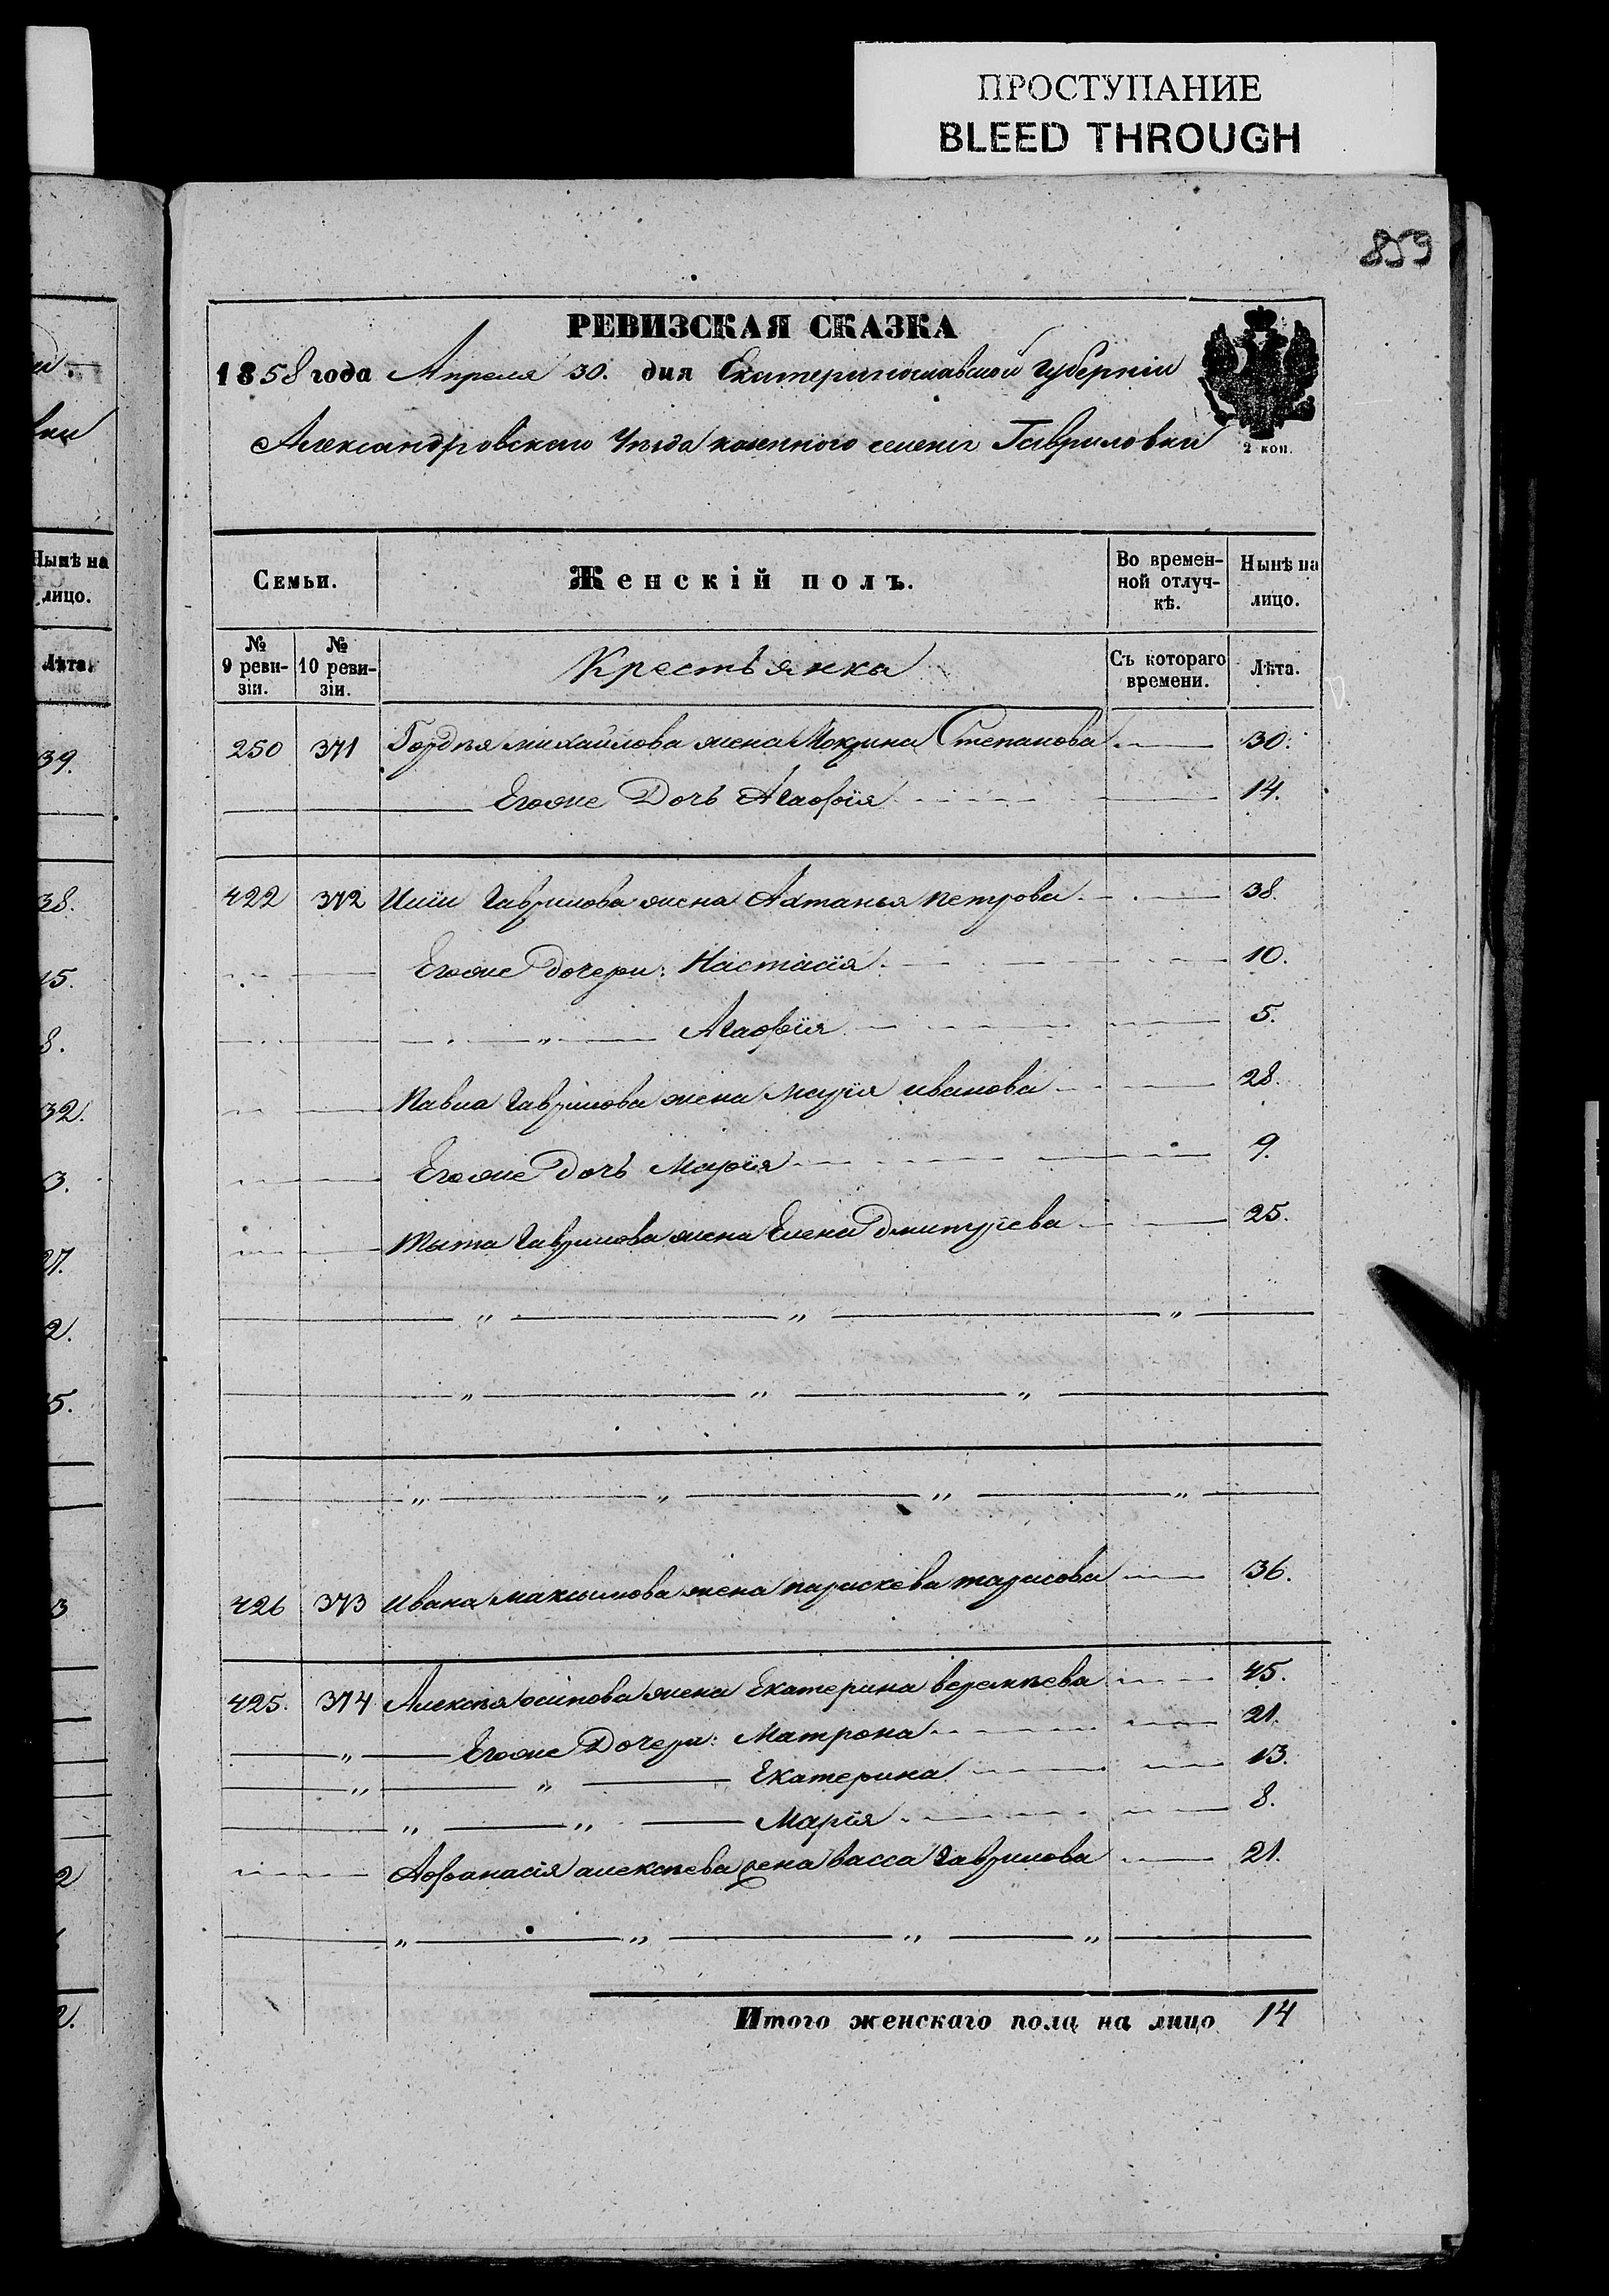 ПРОСТУПАНИЕ
BLEED THROUGH
859
РЕВИЗСКАЯ СКАЗКА
1858 года Апреля 30. дня Екатеринославской Губерніи
Александровскаго Уѣзда казенного селенія Гавриловки
2 коп.
Семьи. Женскій полъ. Во времен-ной отлуч-кѣ. Нынѣ на лицо.
№ 9 реви-зіи. № 10 реви-зіи. Крестьянка Съ котораго времени. Лѣта.
250 371 Гордѣя михайлова жена Мокрина Степанова 30.
Егоже Дочь Агафія 14.
422 372 Иліи Гаврилова жена петрова 38.
Егоже дочери: Настасія 10.
" Агафія 5.
Павла Гаврилова жена Марія иванова 28.
Егоже дочь Марія 9.
Тыта Гаврилова жена Елена Дмитріева 25.
" " "
" " "
" " " "
426 373 Ивана максимова жена параскева тарасова 36.
425. 374 Алексѣя осипова жена Екатерина 45.
" Егоже Дочери: Матрона 21.
" " Екатерина 13.
" " Марія 8.
Афанасія алексѣева жена васса Гаврилова 21.
" " " "
Итого женскаго пола на лицо 14
Нынѣ на
лицо.
Лѣта.
39.
38.
15.
8.
32.
3.
27.
2.
5.
3
2
2.